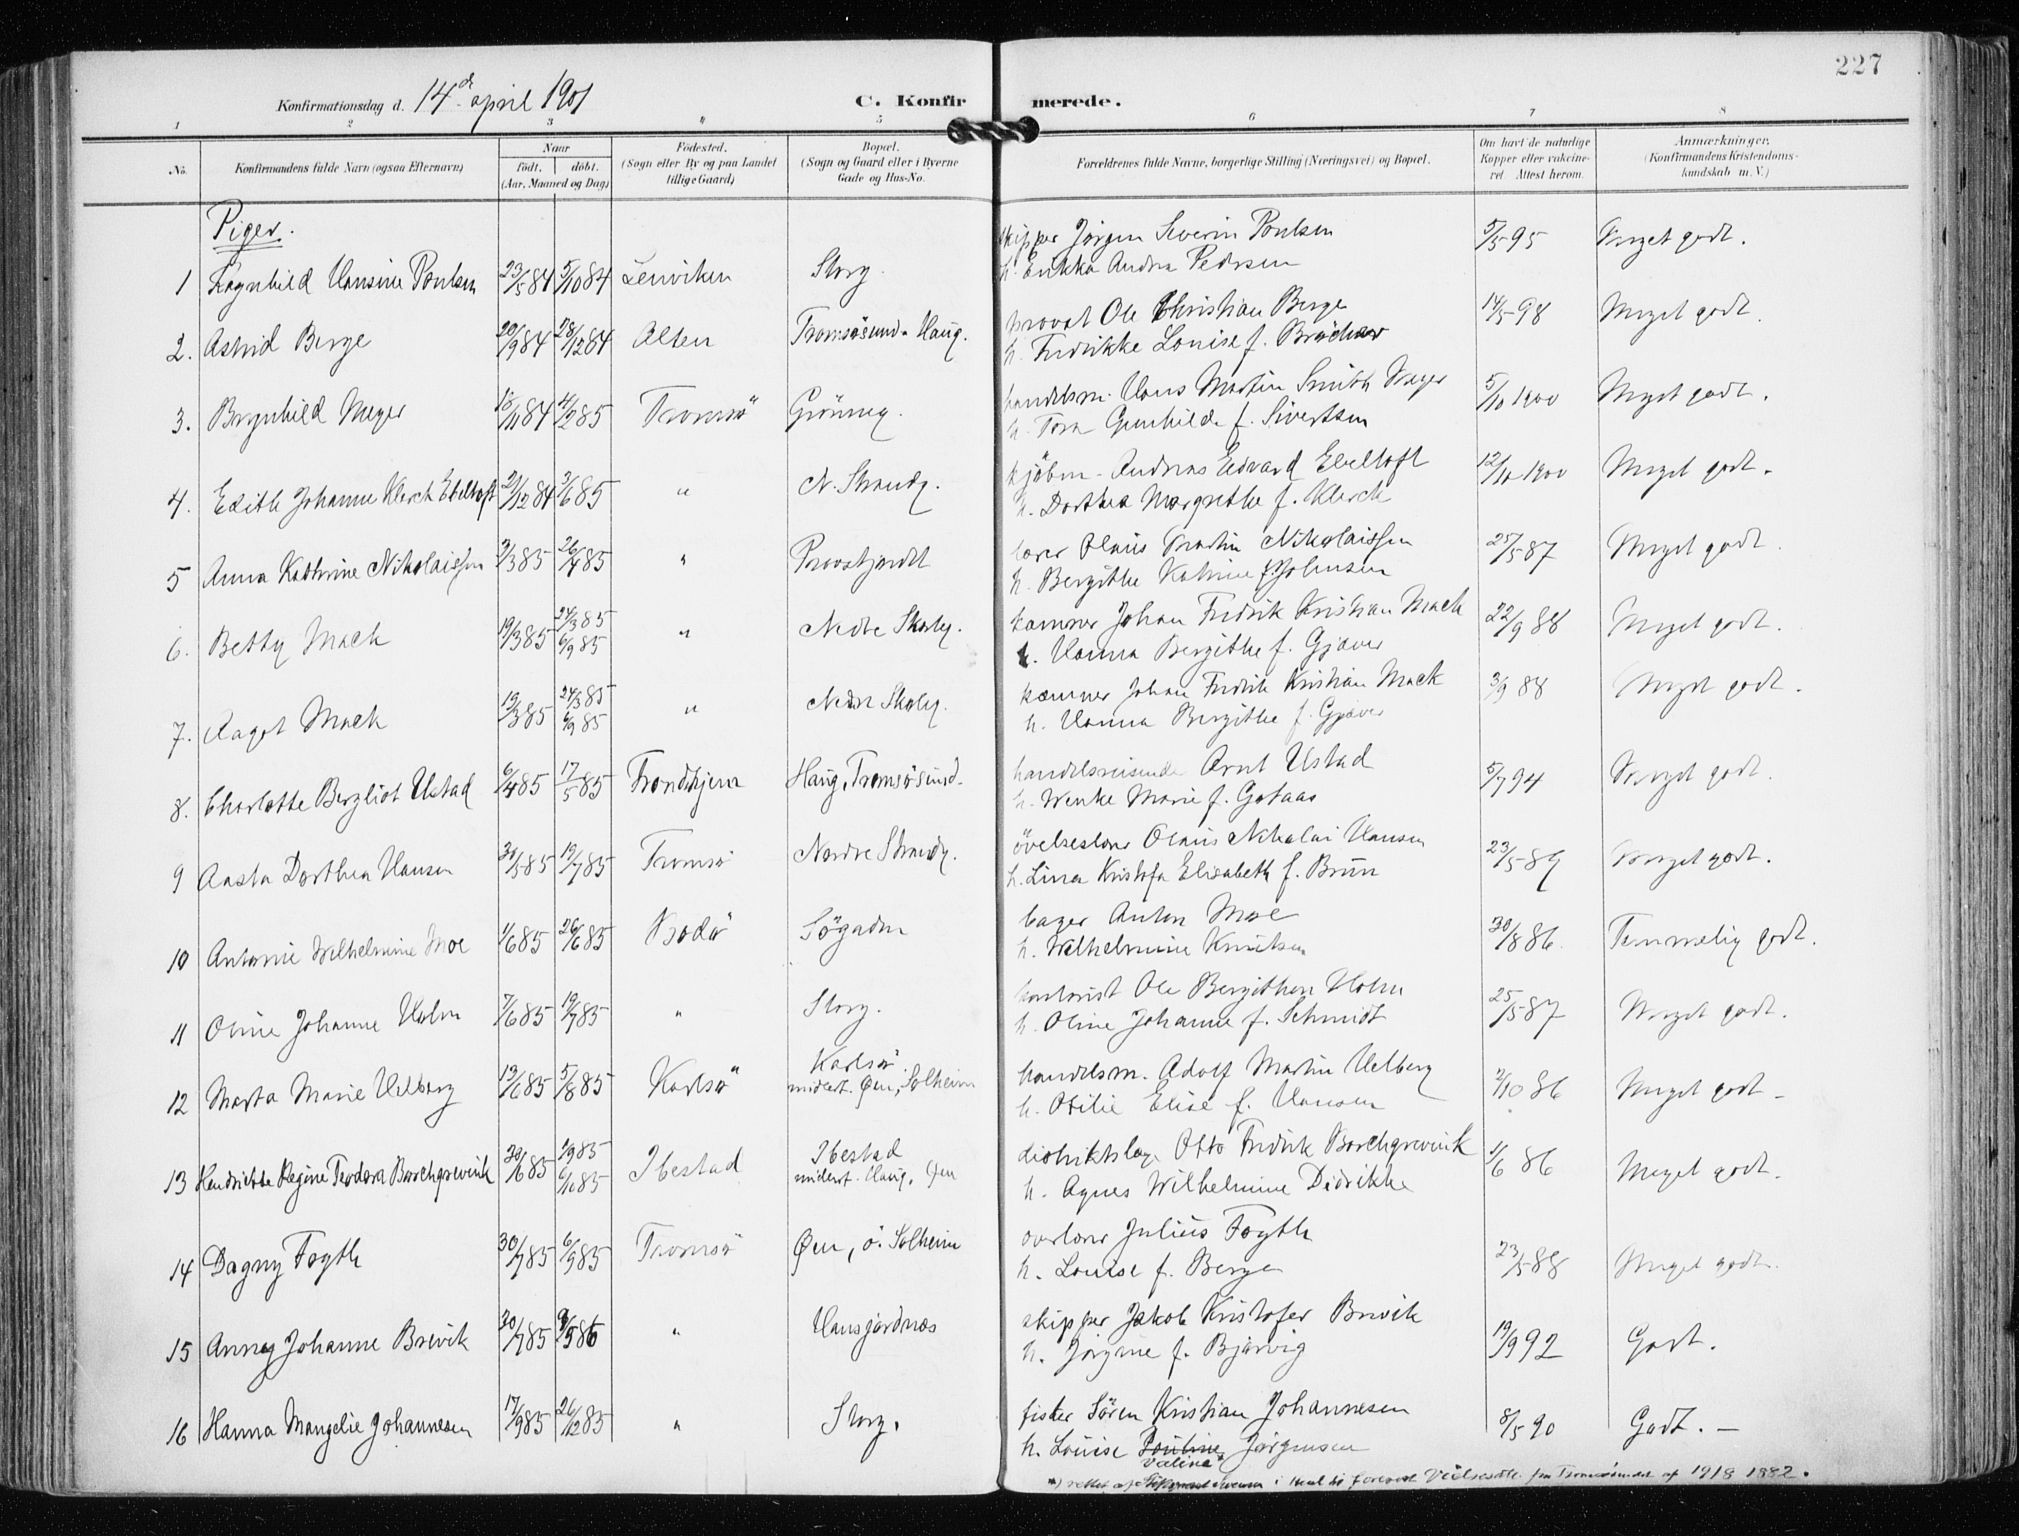 227
Konfirmationsdag d. 14de april 1901
C. Konfirmerede.
1 2 3 " 5 6 7 8
No.
Konfirmandens fulde Navn (ogsaa Efternavn)
Naar
født. døbt.
(Aar, Maaned og Dag)
Fødested.
(Sogn eller By og paa Landet
tillige Gaard)
Bopæl.
(Sogn og Gaard eller i Byerne
Gade og Hus-No.
Forældrenes fulde Navne, borgerlige Stilling (Næringsvei) og Bopæl.
Om havt de naturlige
Kopper eller vakcine-
ret Attest herom.
Anmærkninger.
(Konfirmandens Kristendoms-
kundskab m. V.)
Piger.
skipper Jørgen Severin Poulsen 5/5 95 Meget godt.
1 Ragnhild Hansine Poulsen 23/5 84 5/10 84 Lenviken Storg.
h. Erikka Andrea Pedersen
provst Ole Christian Berge 14/5 98 Meget godt.
2. Astrid Berge 20/9 84 28/12 84 Alten Tromsøsund. Haug.
h. Fredrikke Louise f.
handelsm. Hans Martin Smith Meyer 5/10 1900 Meget godt.
3. Bergnhild Meyer 18/11 84 4/2 85 Tromsø Grønneg.
h. Tora Gunhilde f. Sivertsen
kjøbm. Andreas Edvard Ebeltoft 12/10 1900 Meget godt.
4. Edith Johanne Klerck Ebeltoft 21/12 84 3/6 85 " N. Strandg.
h. Dorthea Margrethe f. Klerck
lærer Olaus Martin Nikolaissen 25/5 87 Meget godt.
5 Anna Kathrine Nikolaissen 9/3 85 26/4 85 " Provstjordet
h. Bergithe Katrine f. Johnsen
kæmner Johan Fredrik Kristian Mack 22/9 88 Meget godt.
6. Betty Mack 19/3 85 24/3 85 6/9 85 " Nedre Skoleg.
h. Hanna Bergithe f. Gjæver
kæmner Johan Fredrik Kristian Mack 3/9 88 Meget godt.
7. Aagot Mack 19/3 85 24/3 85 6/9 85 " Nedre Skoleg.
h. Hanna Bergithe f. Gjæver
handelsreisende Arnt Ustad 5/7 94 Meget godt.
8. Charlotte Bergliot Ustad 6/4 85 17/5 85 Trondhjem Haug, Tromsøsund.
h. Wenke Marie f. Gotaas
øvelseslærer Olaus Nikolai Hansen 23/5 89 Meget godt.
9 Aasta Dorthea Hansen 30/5 85 19/7 85 Tromsø Nordre Strandg.
h. Lina Kristofa Elisabeth f. Bruun
bager Anton Moe 30/8 86. Temmelig godt.
10 Antonie Wilhelmine Moe 1/6 85 26/6 85 Bodø Søgaden
h. Wilhelmine Knutsen
kontorist Ole Bergithon Holm 25/5 87 Meget godt.
11 Oline Johanne Holm 7/6 85 19/7 85 " Storg.
h. Oline Johanne f. Schmidt
handelsm. Adolf Martin Helberg 2/10 86 Meget godt.
12 Marta Marie Helberg 19/6 85 5/8 85 Karlsø Karlsø.
midlert. Øen, Solheim
h. Otilie Elise f. Hansen
distriktslæge Otto Fredrik Borchgrevink 1/6 86 Meget godt.
13 Hendriette Regine Teodora Borchgrevink 20/6 85 1/9 85 6/10 85 Ibestad Ibestad
midlert. Haug, Øen
h. Agnes Wilhelmine Didrikke
overlærer Julius Fogth 23/5 88 Meget godt.
14 Dagny Fogth 30/7 85 6/9 85 Tromsø Øen, ö. Solheim
h. Louise f. Berge
skipper Jakob Kristofer Brevik 19/9 92 Godt.
15 Anny Johanne Brevik 30/7 85 9/5 86 " Hansjordnæs
h. Jørgine f. Bjørvig
fisker Søren Kristian Johannesen 8/5 90 Godt. –
16 Hanna Mangelie Johannesen 17/9 85 26/12 85 " Storg.
h. Louise Pauline Jørgensen
Valine*
*) rettet af i Henhold forevist Vielsesatt. fra Tromsøsundet af 1918 1882.